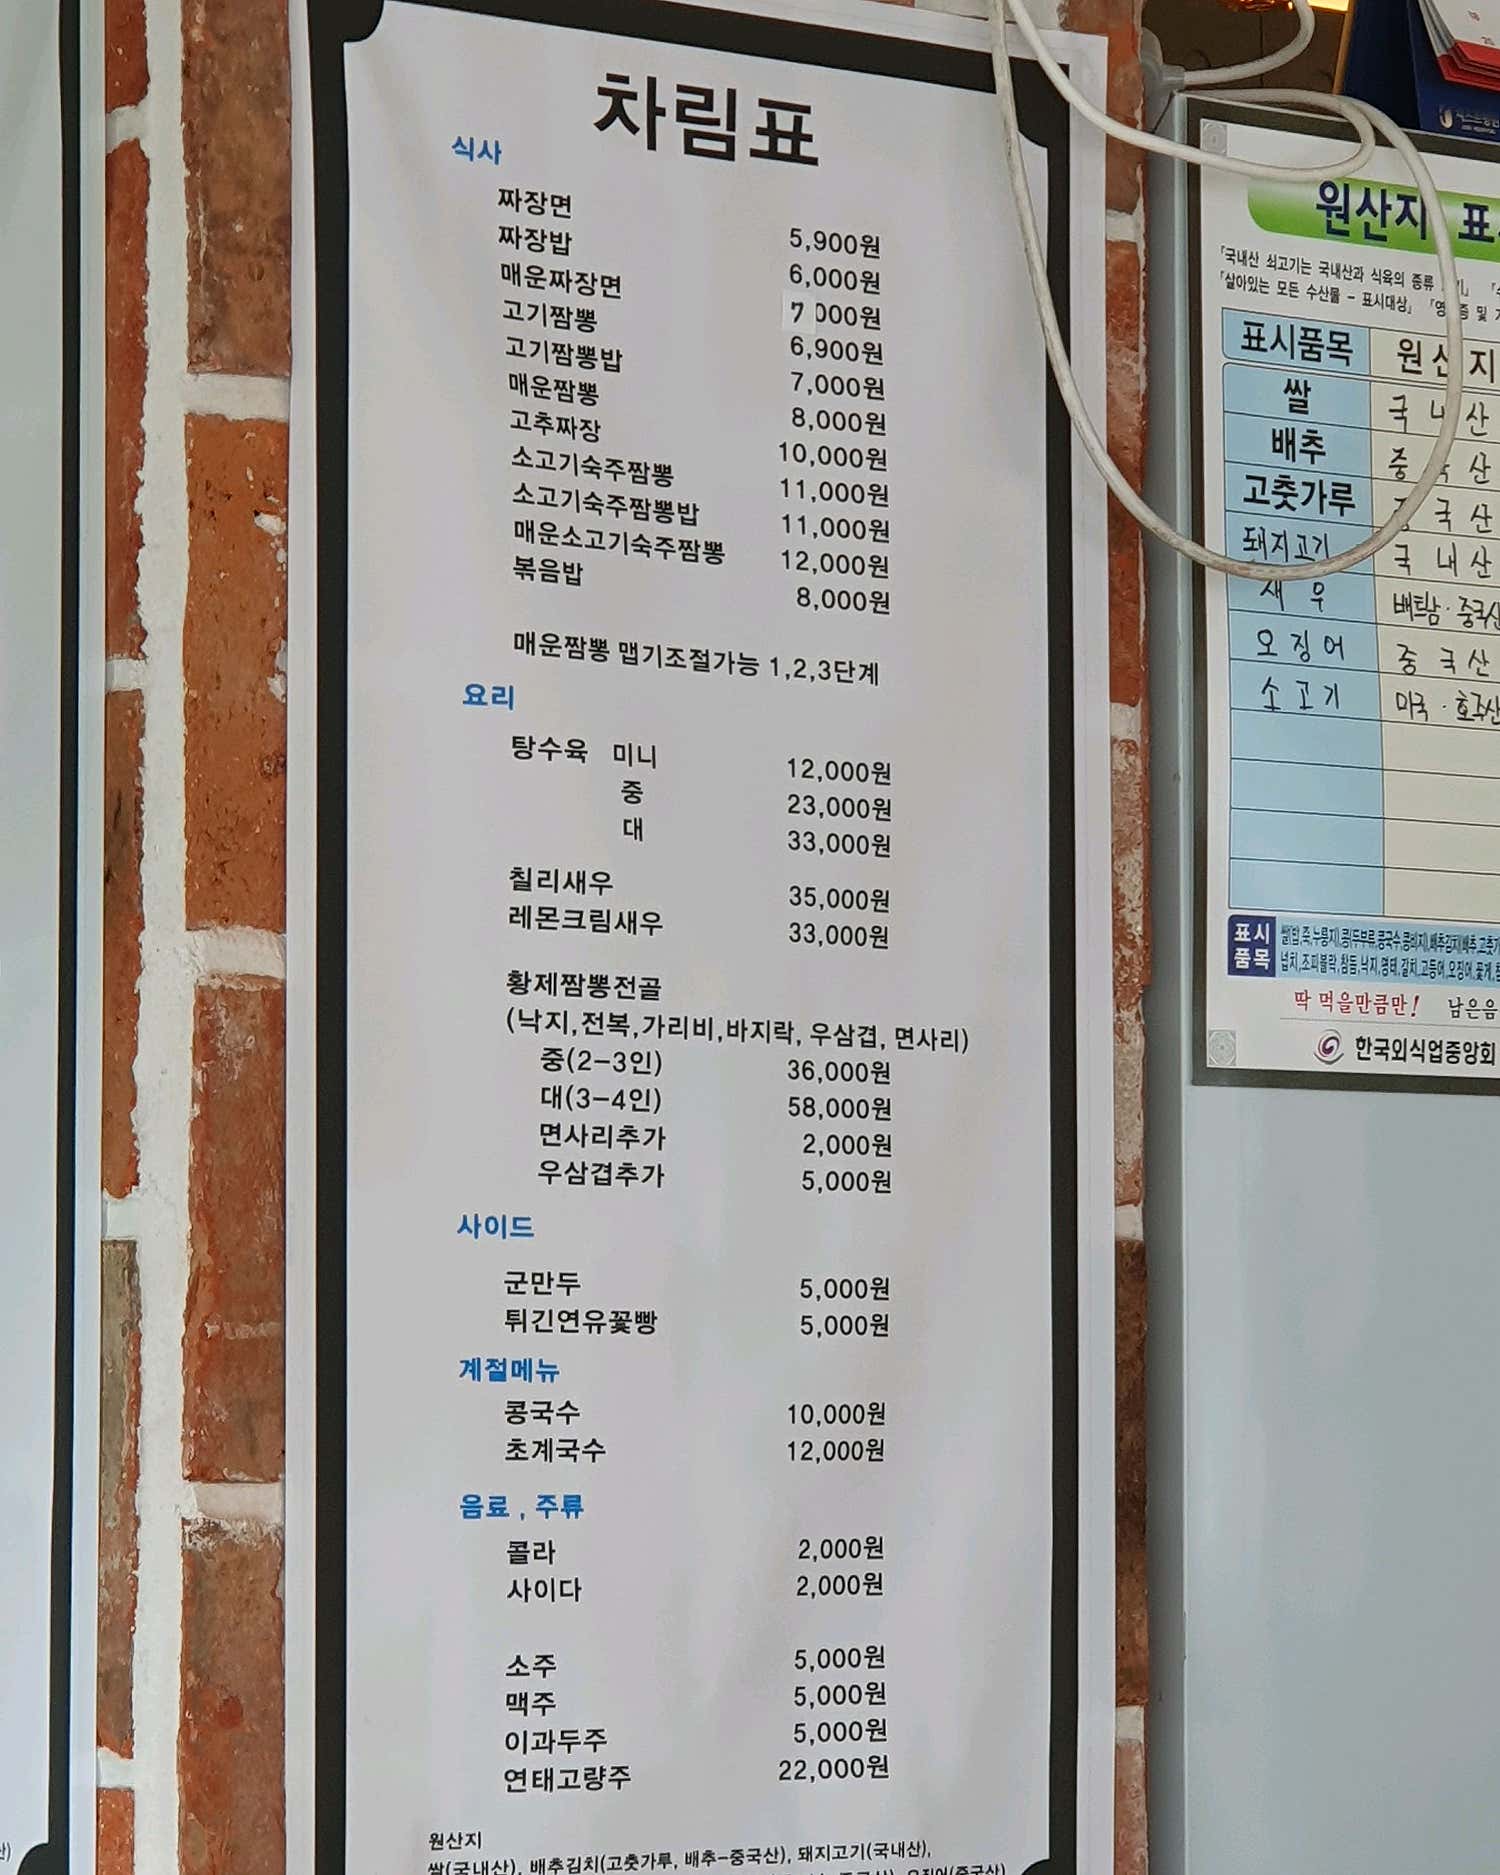 차림표
식사
짜장면 5,900원
짜장밥 6,000원
매운짜장면 7,000원
고기짬뽕 6,900원
고기짬뽕밥 7,000원
매운짬뽕 8,000원
고추짜장 10,000원
소고기숙주짬뽕 11,000원
소고기숙주짬뽕밥 11,000원
매운소고기숙주짬뽕 12,000원
볶음밥 8,000원
매운짬뽕 맵기조절가능 1,2,3단계
요리
탕수육 미니 12,000원
중 23,000원
대 33,000원
칠리새우 35,000원
레몬크림새우 33,000원
황제짬뽕전골
(낙지,전복,가리비,바지락, 우삼겹, 면사리)
중(2-3인) 36,000원
대(3-4인) 58,000원
면사리추가 2,000원
우삼겹추가 5,000원
사이드
군만두 5,000원
튀긴연유꽃빵 5,000원
계절메뉴
콩국수 10,000원
초계국수 12,000원
음료 , 주류
콜라 2,000원
사이다 2,000원
소주 5,000원
맥주 5,000원
이과두주 5,000원
연태고량주 22,000원
원산지
쌀(국내산), 배추김치(고춧가루, 배추-중국산), 돼지고기(국내산),
원산지
「국내산 쇠고기는 국내산과 식육의 종류
「살아있는 모든 수산물 - 표시대상」
표시품목 원산지
쌀 국내산
배추 중국산
고춧가루 중국산
돼지고기 국내산
새우 베트남·중국산
오징어 중국산
소고기 미국·호주산
표시
품목
쌀(밥,죽,누룽지),콩(두부류,콩국수,콩비지),배추김치(배추,고춧가
넙치,조피볼락,참돔,낙지,명태,갈치,고등어,오징어,꽃게,
딱 먹을만큼만! 남은음
한국외식업중앙회